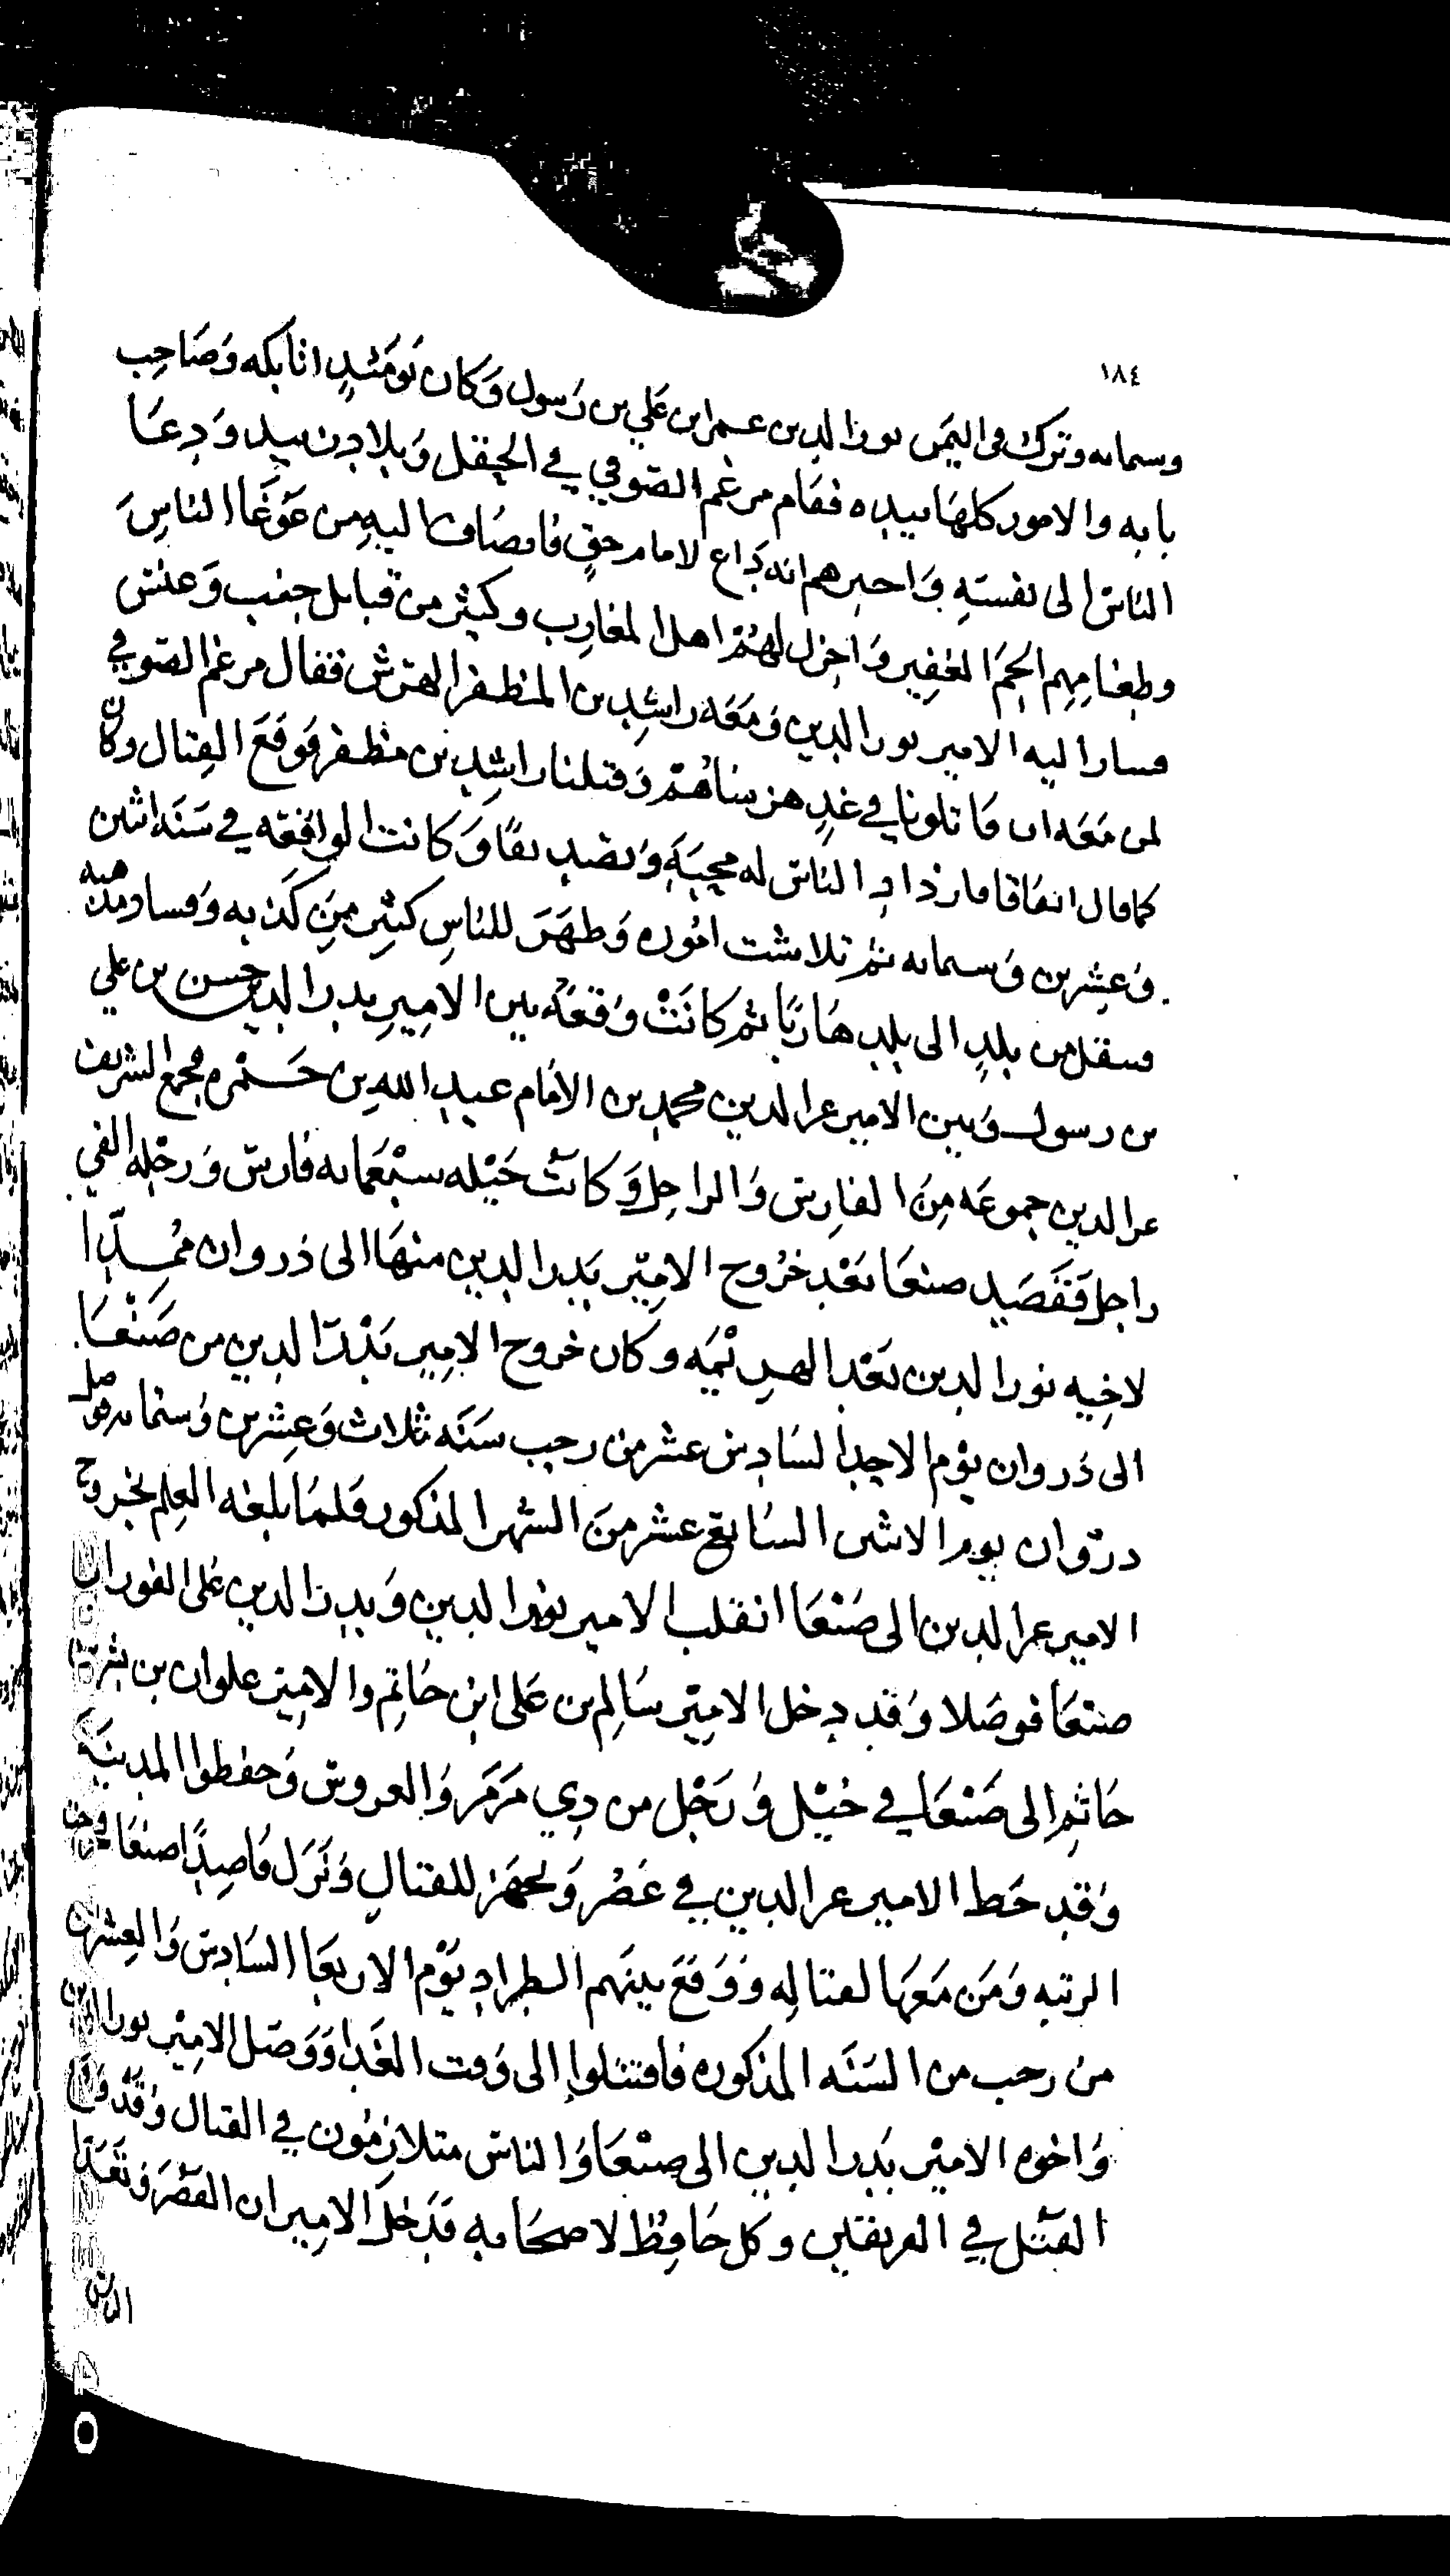 ١٨٤
وسمايه وترك في اليمن نور الدين عمر ابن علي بن رسول وكان يومئذ اتابكه وصاحب
بابه والامور كلها بيده فقام مرغم الصوفي في الحقل وبلاد زبيد ودعا
الناس الى نفسه واخبرهم انه داع لامام حق فانضاف اليه من غوغا الناس
وطغامهم الجم الغفير واجزل لهم اهل المغارب وكثير من قبايل جنب وعنس
فسار اليه الامير نور الدين ومعه راشد بن المظفر الهرش فقال مرغم الصوفي
لمن معه ان قاتلونا في غد هزمناهم وقتلنا راشد بن مظفر فوقع القتال وكان
كما قال اتفاقا فازداد الناس له محبة وتصديقا وكانت الواقعه في سنه اثنين
وعشرين وستمايه ثم تلاشت اموره وظهر للناس كثير من كذبه وفساد مذهبه
فتنقل من بلد الى بلد هاربا ثم كانت وقعه بين الامير بدر الدين حسن بن علي
بن رسول وبين الامير عز الدين محمد بن الامام عبد الله بن حمزه فجمع الشريف
عز الدين جموعه من الفارس والراجل وكانت خيله سبعمايه فارس ورجله الفي
راجل فقصد صنعا بعد خروج الامير بدر الدين منها الى ذروان ممدا
لاخيه نور الدين بعد الهزيمه وكان خروج الامير بدر الدين من صنعا
الى ذروان يوم الاحد السادس عشر من رجب سنه ثلاث وعشرين وستمايه فوصل
ذروان يوم الاثنين السابع عشر من الشهر المذكور فلما بلغه العلم بخروج
الامير عز الدين الى صنعا انقلب الامير نور الدين وبدر الدين على الفور الى
صنعا فوصلا وقد دخل الامير سالم بن على ابن حاتم والامير علوان بن بشر بن
حاتم الى صنعا في خيل ورجل من ذي مرمر والعروس وحفظوا المدينه
وقد حط الامير عز الدين في عصر وتجهز للقتال ونزل قاصدا صنعا فخرجت
الرتبه ومن معها لقتاله ووقع بينهم الطراد يوم الاربعا السادس والعشرين
من رجب من السنه المذكوره فاقتتلوا الى وقت الغدا ووصل الامير نور الدين
واخوه الامير بدر الدين الى صنعا والناس متلازمون في القتال وقد وقع
القتل في الفريقين وكل حافظ لاصحابه فدخل الاميران القصر وتغديا